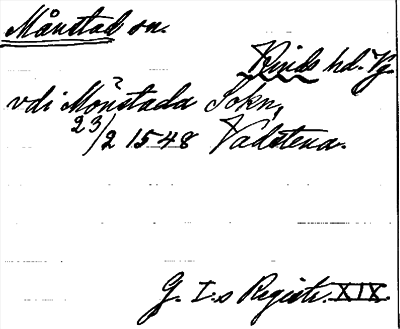 Månstad sn.
Kinds hd. Vg.
vdi Mönstada Sokn,
23/2 1548 Vadstena.
G. I.s Registr. XIX.